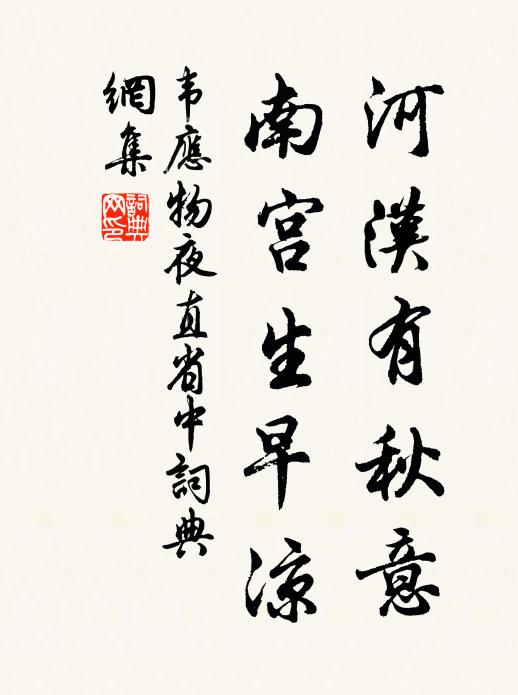 河漢有秋意
南宮生早涼
韦應物夜直省中詞典
網集
詞典网印